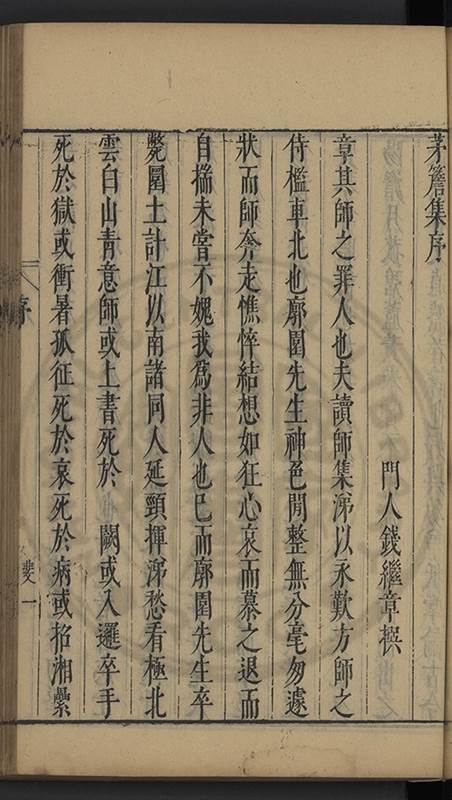 茅簷集序
門人錢繼章撰
章其師之罪人也夫讀師集涕以永歎方師之
侍檻車北也廓園先生神色閒整無分毫匆遽
狀而師奔走憔悴結想如狂心哀而慕之退而
自揣未嘗不媿我為非人也已而廓園先生卒
斃圜土計江以南諸同人延頸揮涕愁看極北
雲白山青意師或上書死於 闕或入邏卒手
死於獄或衝暑孤征死於哀死於病或招湘纍
序
一